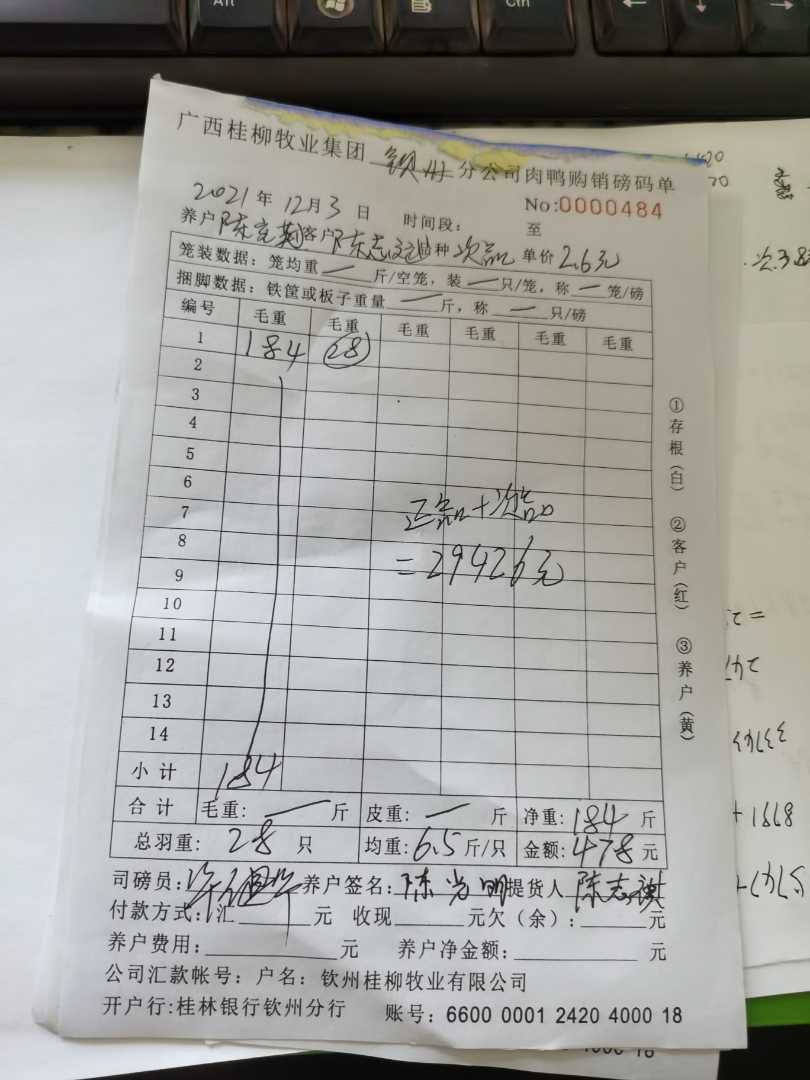 广西桂柳牧业集团 钦州 分公司肉鸭购销磅码单
No:0000484
2021年 12月 3日 时间段: 至
养户 陈 客户 陈志 品种 次品 单价 2.6元
笼装数据: 笼均重 — 斤/空笼, 装 — 只/笼, 称 — 笼/磅
捆脚数据: 铁筐或板子重量 — 斤, 称 — 只/磅
编号 毛重 毛重 毛重 毛重 毛重 毛重
1 184 28
2
3
4
5
6
7
正品+次品
8
=29426元
9
10
11
12
13
14
小计 184
合计 毛重: — 斤 皮重: — 斤 净重: 184 斤
总羽重: 28 只 均重: 6.5 斤/只 金额: 478 元
司磅员: 养户签名: 陈光明 提货人 陈志
付款方式: 汇 元 收现 元欠(余): 元
养户费用: 元 养户净金额: 元
公司汇款帐号: 户名: 钦州桂柳牧业有限公司
开户行:桂林银行钦州分行 账号: 6600 0001 2420 4000 18
①存根(白) ②客户(红) ③养户(黄)